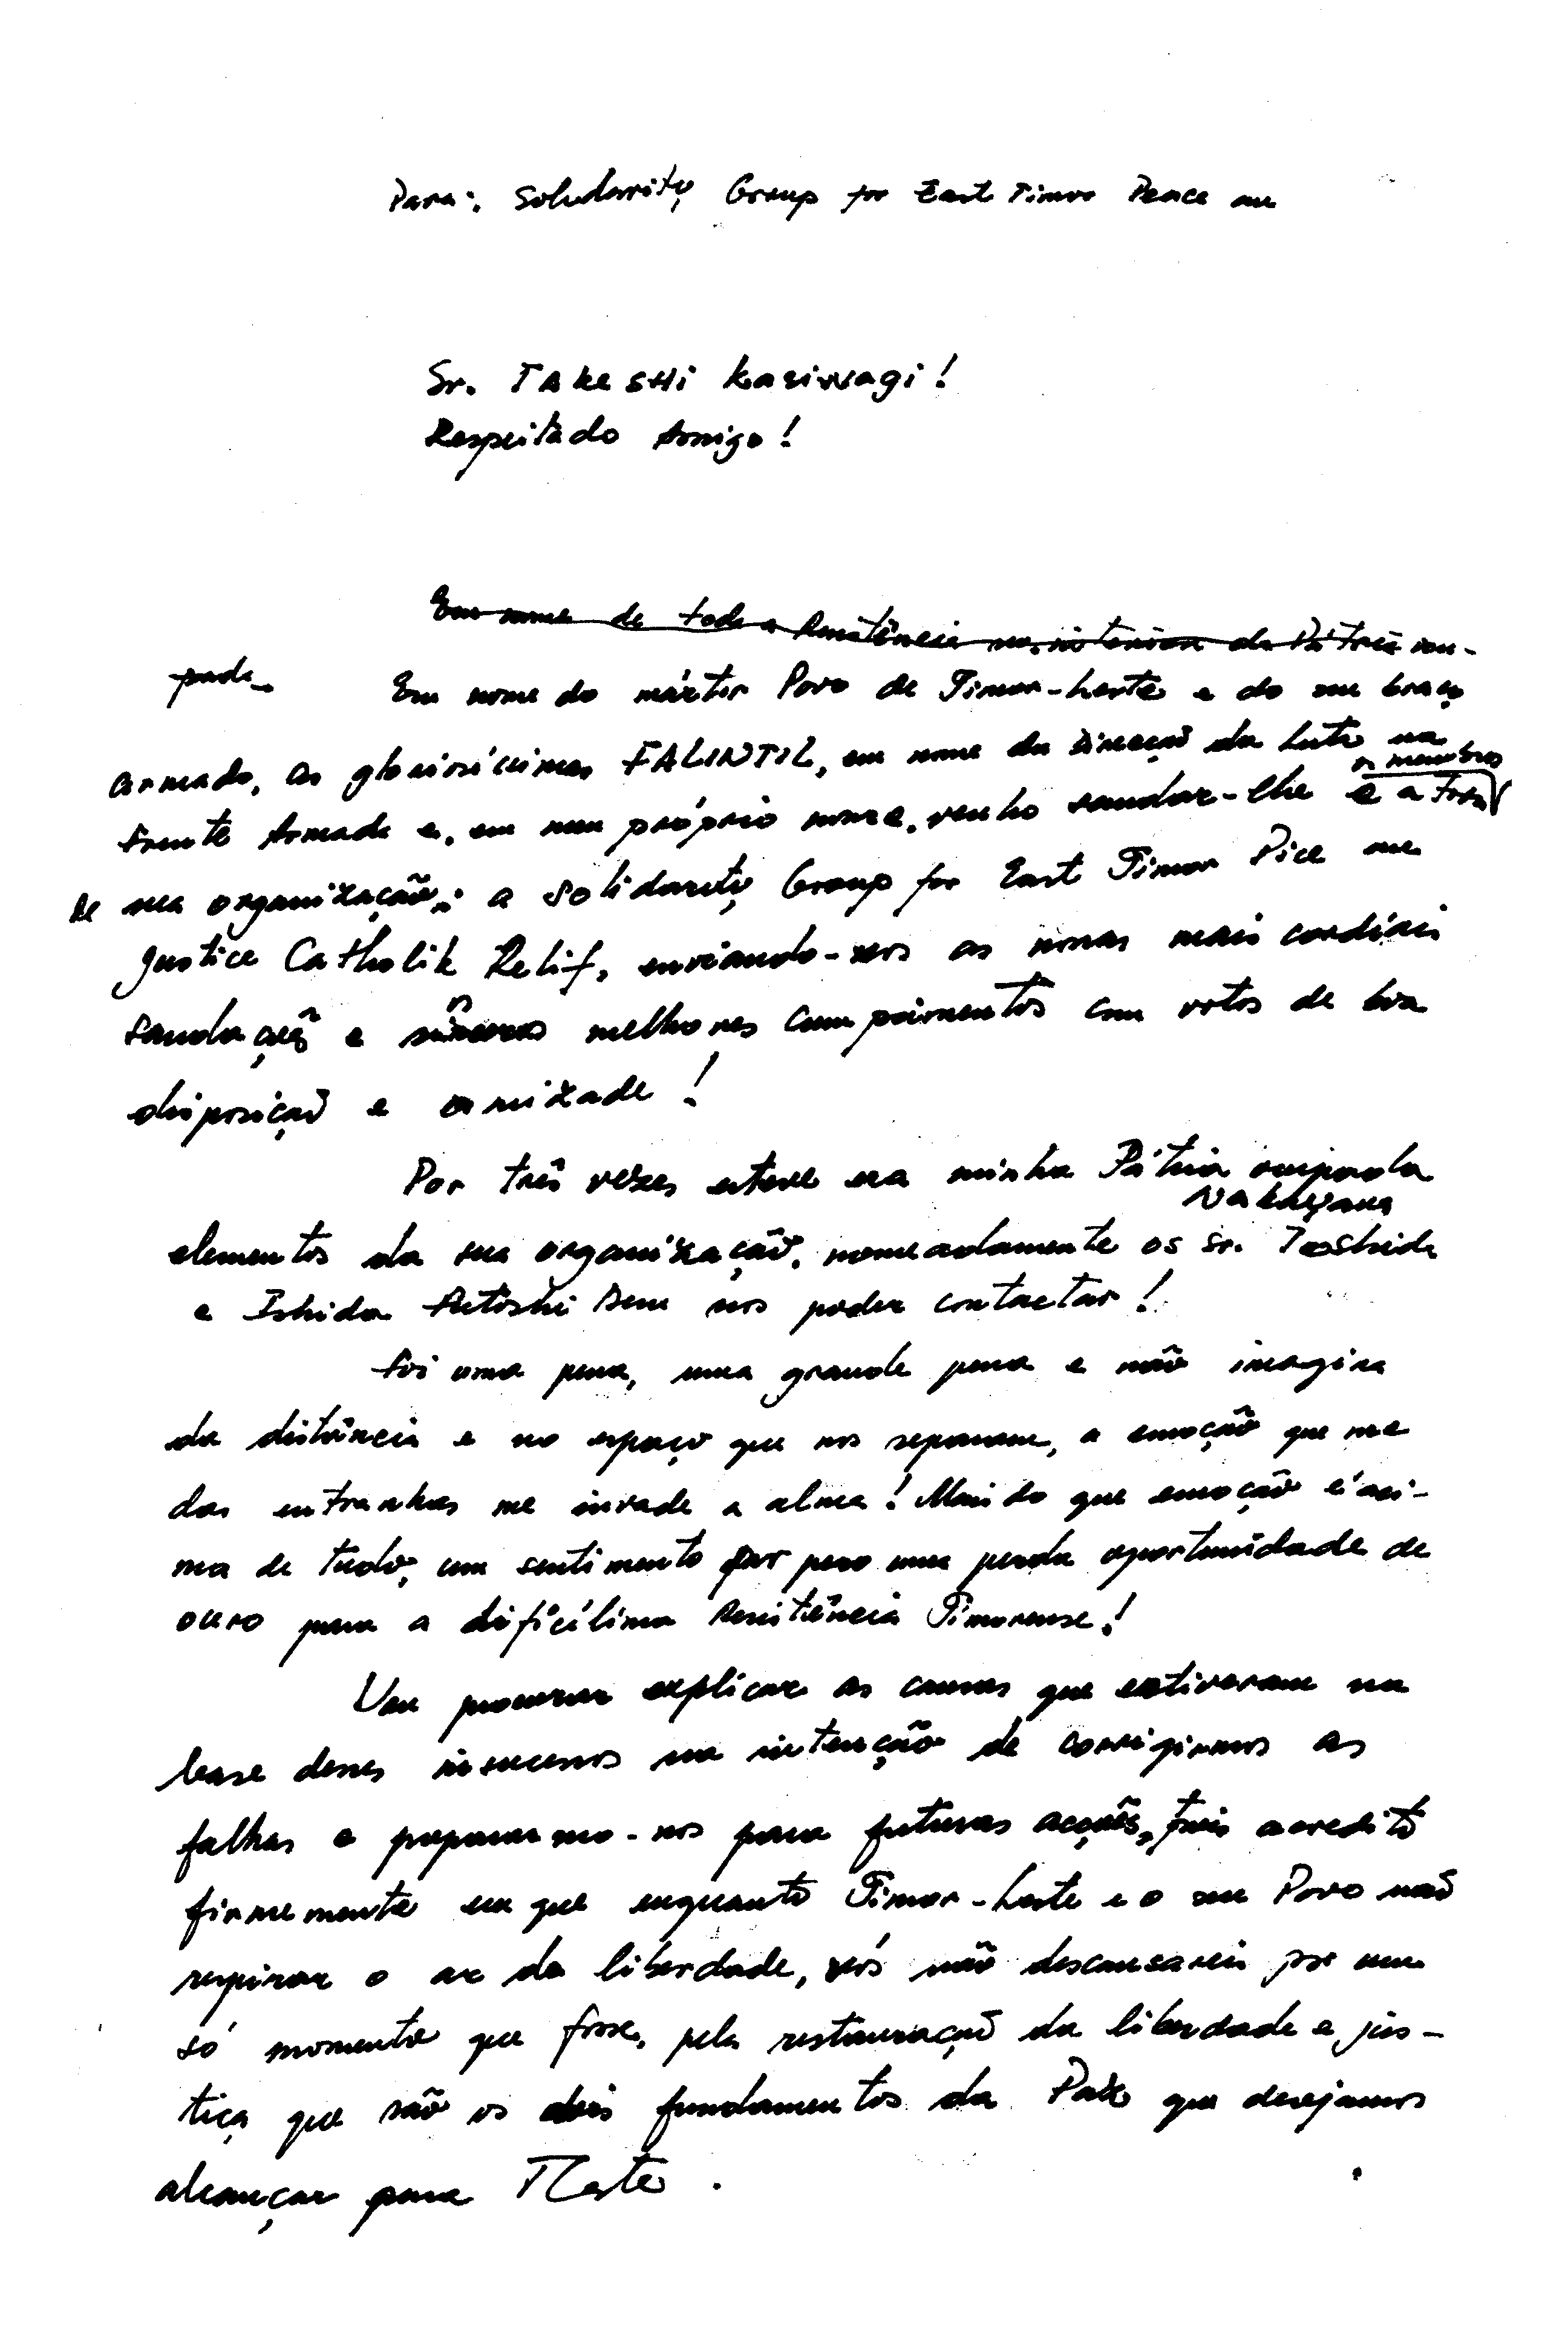 Para: Soludarity Group for East Timor Peace an
Sr. TAkeSHi Kasiwagi!
Respeitado Amigo!
Em nome de toda a Resistência no interior da Pátria ocu-
pada
Em nome do mártir Povo de Timor-Leste e do seu braço
armado, as gloriosíssimas FALINTIL, em nome da Direcção da Luta na
os membros
Frente Armada e, em meu próprio nome, venho saudar-lhe e a todos
de sua organização: a Solidarity Group for East Timor Pice an
Justice Catholik Relif, enviando-vos as nossas mais cordiais
saudações e os melhores cumprimentos com votos de boa
disposição e amizade!
Por três vezes esteve na minha Pátria ocupada
Nakayama
elementos da sua organização, nomeadamente os sr. Toshide
e Ishida sem nos poder contactar!
Foi uma pena, uma grande pena e não imagina
da distância e no espaço que nos separam, a emoção que me
das entranhas me invade a alma! Mais do que emoção é aci-
ma de tudo, um sentimento por uma perda oportunidade de
ouro para a dificílima Resistência Timorense!
Vou procurar explicar as causas que estiveram na
base desses insucessos na intenção de corrigirmos as
falhas e prepararmo-nos para futuras acções, pois acredito
firmemente em que enquanto Timor-Leste e o seu Povo não
respirar o ar da liberdade, vós não descansareis por um
só momento que fosse, pela restauração da liberdade e jus-
tiça que são os dois fundamentos da Paz que desejamos
alcançar para TLeste.